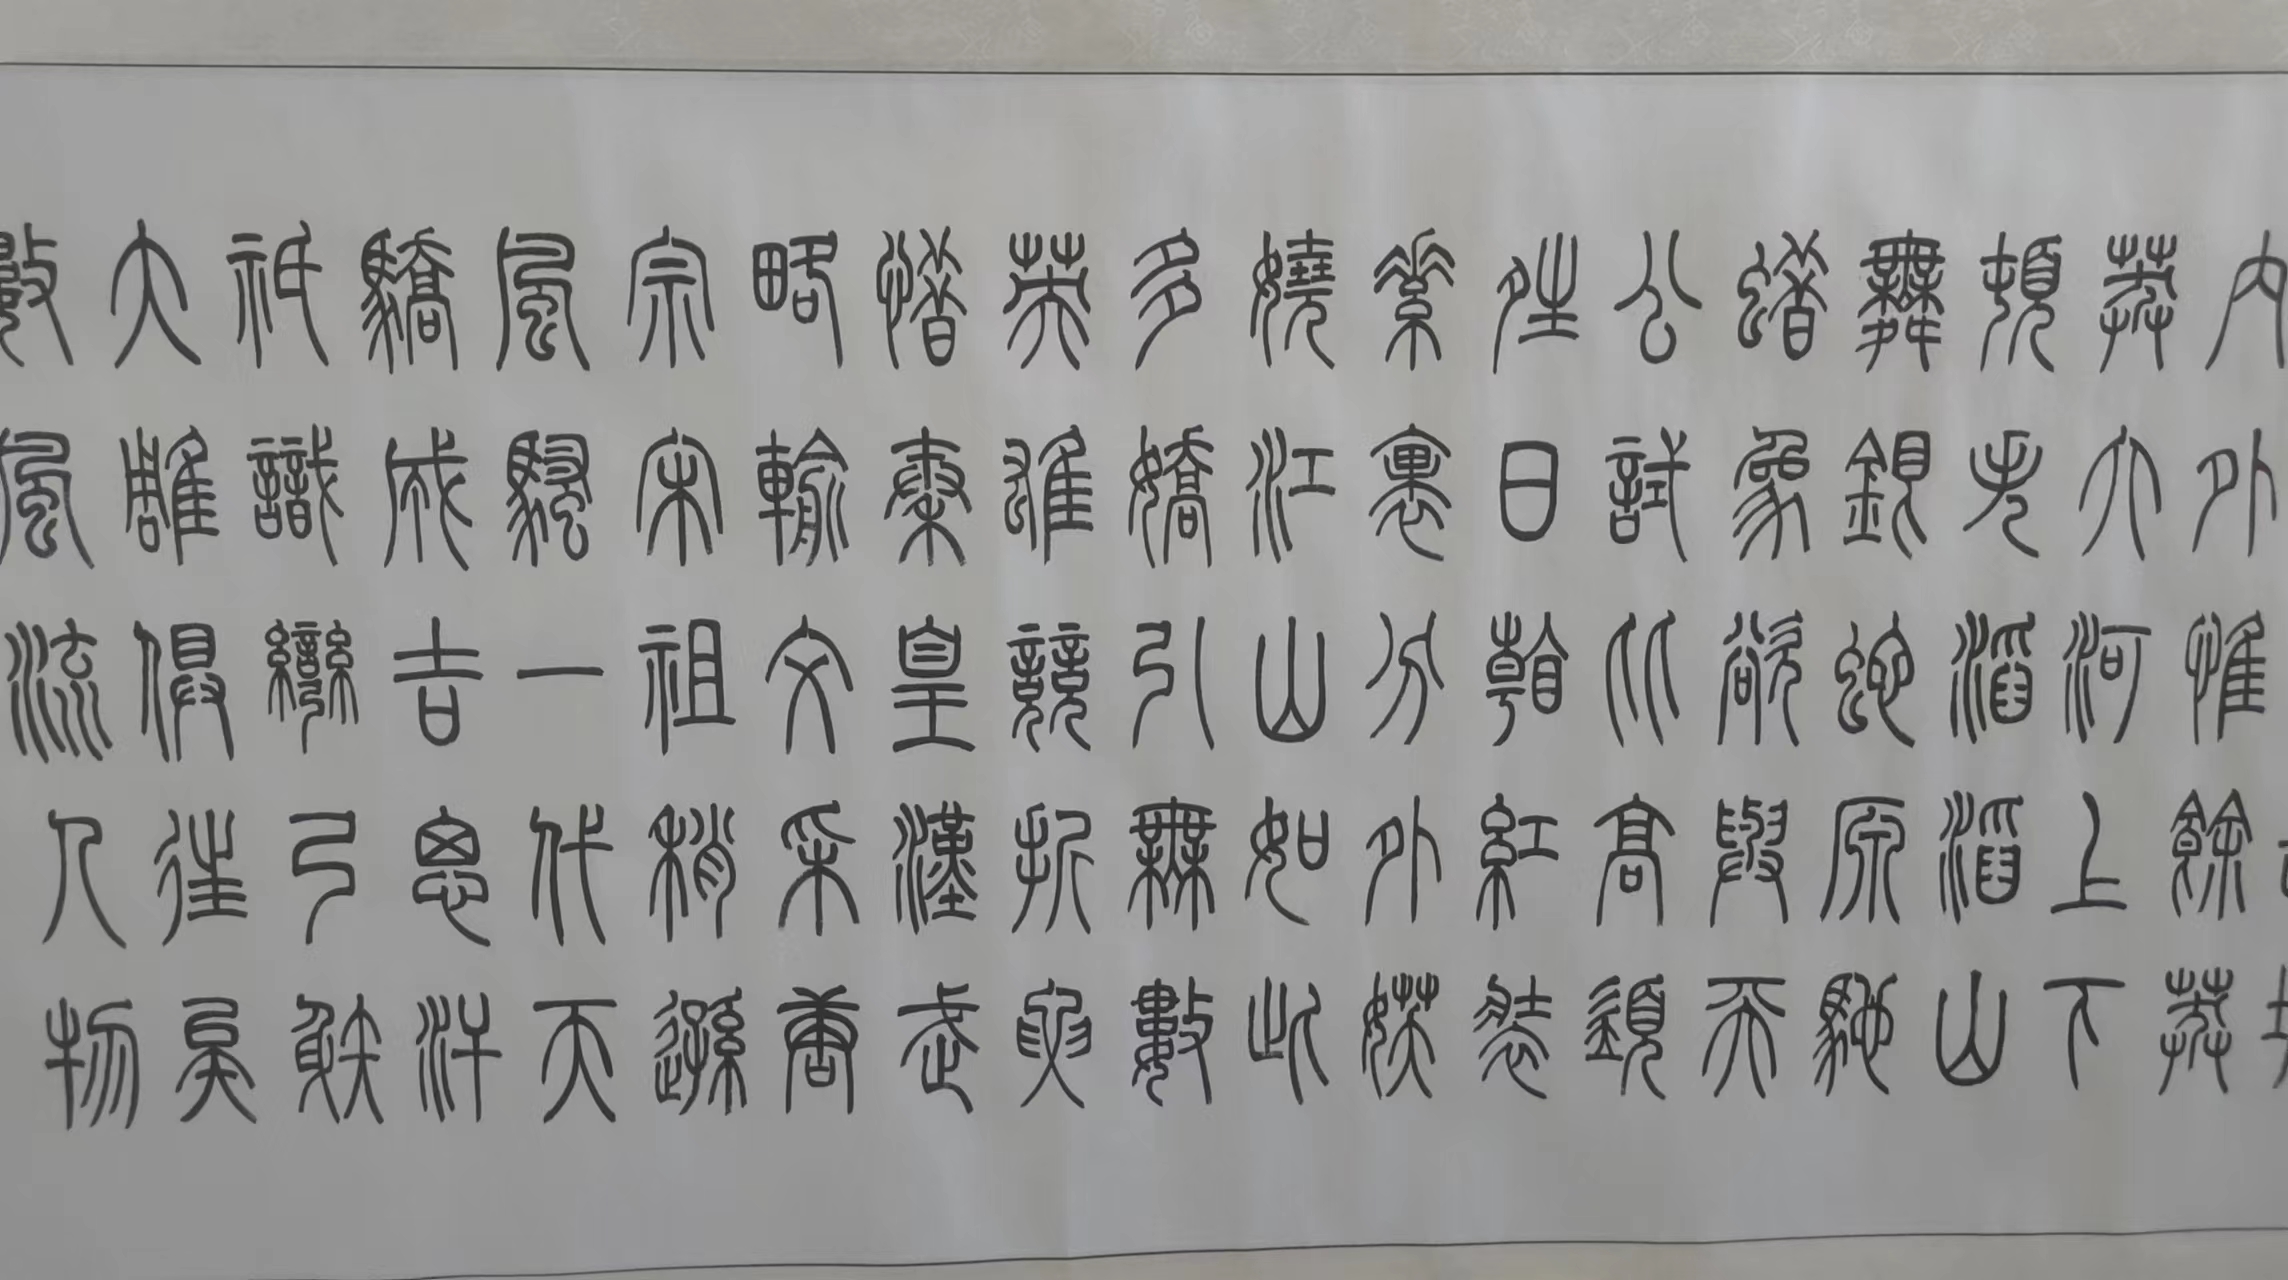 内外惟餘莽
莽大河上下
頓失滔滔山
舞銀蛇原馳
蠟象欲與天
公試比高須
晴日看紅裝
素裹分外妖
嬈江山如此
多嬌引無數
英雄競折腰
惜秦皇漢武
略輸文采唐
宗宋祖稍遜
風騷一代天
驕成吉思汗
祇識彎弓射
大雕俱往矣
數風流人物